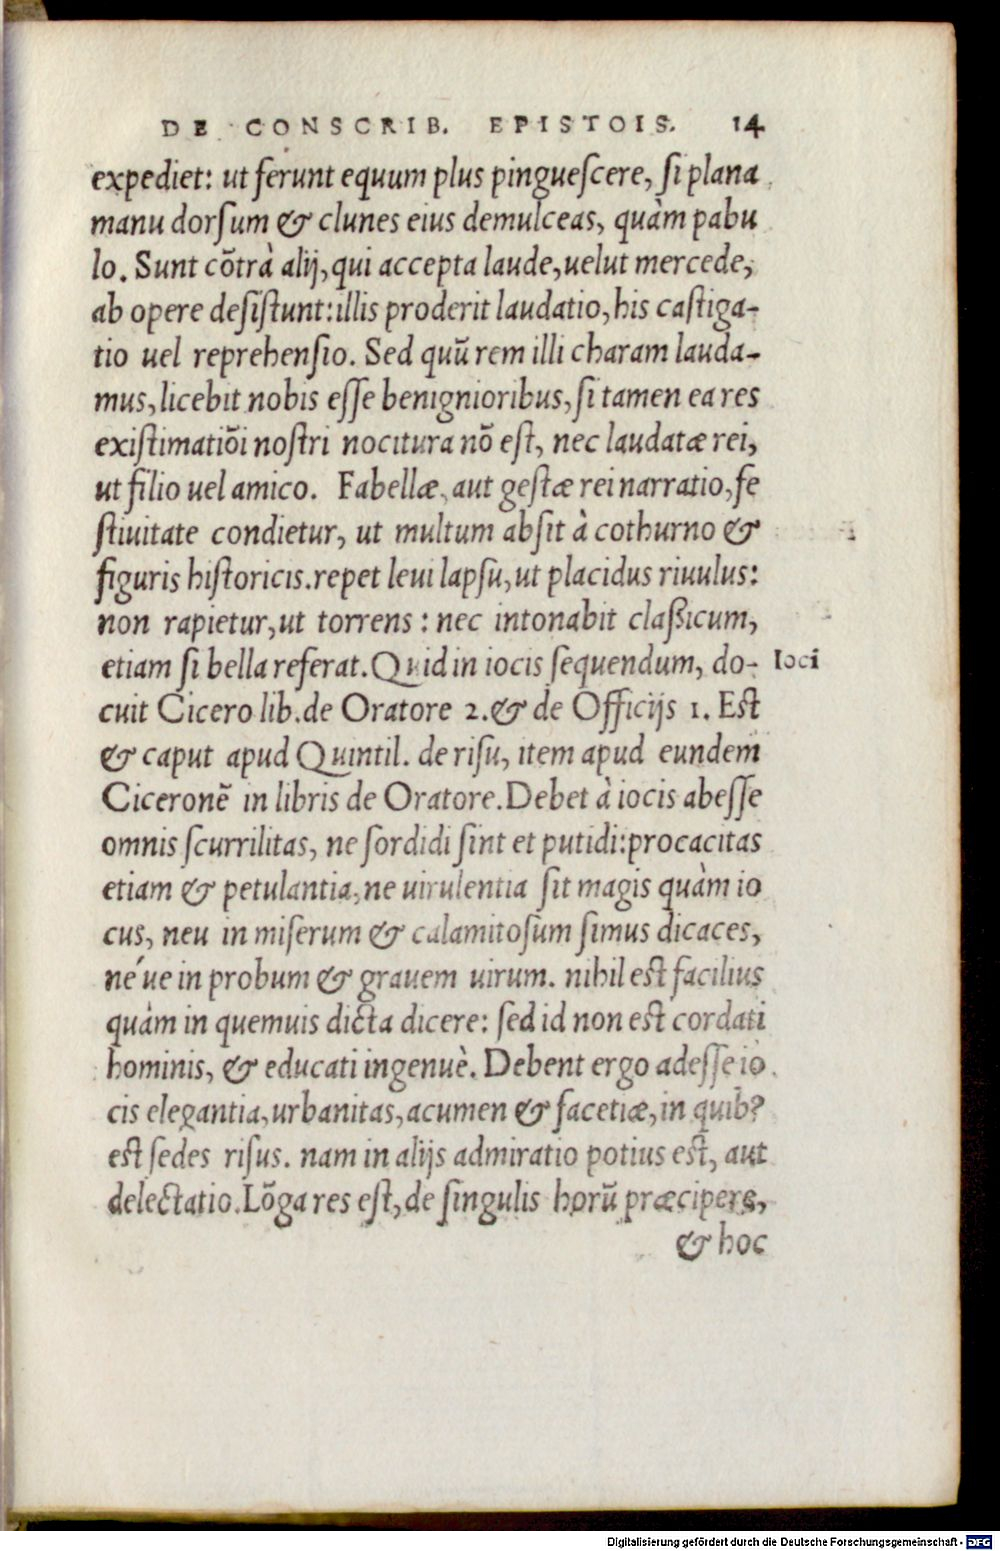 DE CONSCRIB. EPISTOIS. 14
expediet: ut ferunt equum plus pinguescere, si plana
manu dorsum & clunes eius demulceas, quàm pabu
lo. Sunt cōtrà alij, qui accepta laude, uelut mercede,
ab opere desistunt: illis proderit laudatio, his castiga-
tio uel reprehensio. Sed quū rem illi charam lauda-
mus, licebit nobis esse benignioribus, si tamen ea res
existimatiōi nostri nocitura nō est, nec laudatæ rei,
ut filio uel amico. Fabellæ, aut gestæ rei narratio, fe
stiuitate condietur, ut multum absit à cothurno &
figuris historicis. repet leui lapsu, ut placidus riuulus:
non rapietur, ut torrens: nec intonabit classicum,
etiam si bella referat. Quid in iocis sequendum, do-
Ioci
cuit Cicero lib. de Oratore 2. & de Officijs 1. Est
& caput apud Quintil. de risu, item apud eundem
Ciceronē in libris de Oratore. Debet à iocis abesse
omnis scurrilitas, ne sordidi sint et putidi: procacitas
etiam & petulantia, ne uirulentia sit magis quàm io
cus, neu in miserum & calamitosum simus dicaces,
né ue in probum & grauem uirum. nihil est facilius
quàm in quemuis dicta dicere: sed id non est cordati
hominis, & educati ingenuè. Debent ergo adesse io
cis elegantia, urbanitas, acumen & facetiæ, in quib?
est sedes risus. nam in alijs admiratio potius est, aut
delectatio. Lōga res est, de singulis horū præcipere,
& hoc
Digitalisierung gefördert durch die Deutsche Forschungsgemeinschaft - DFG